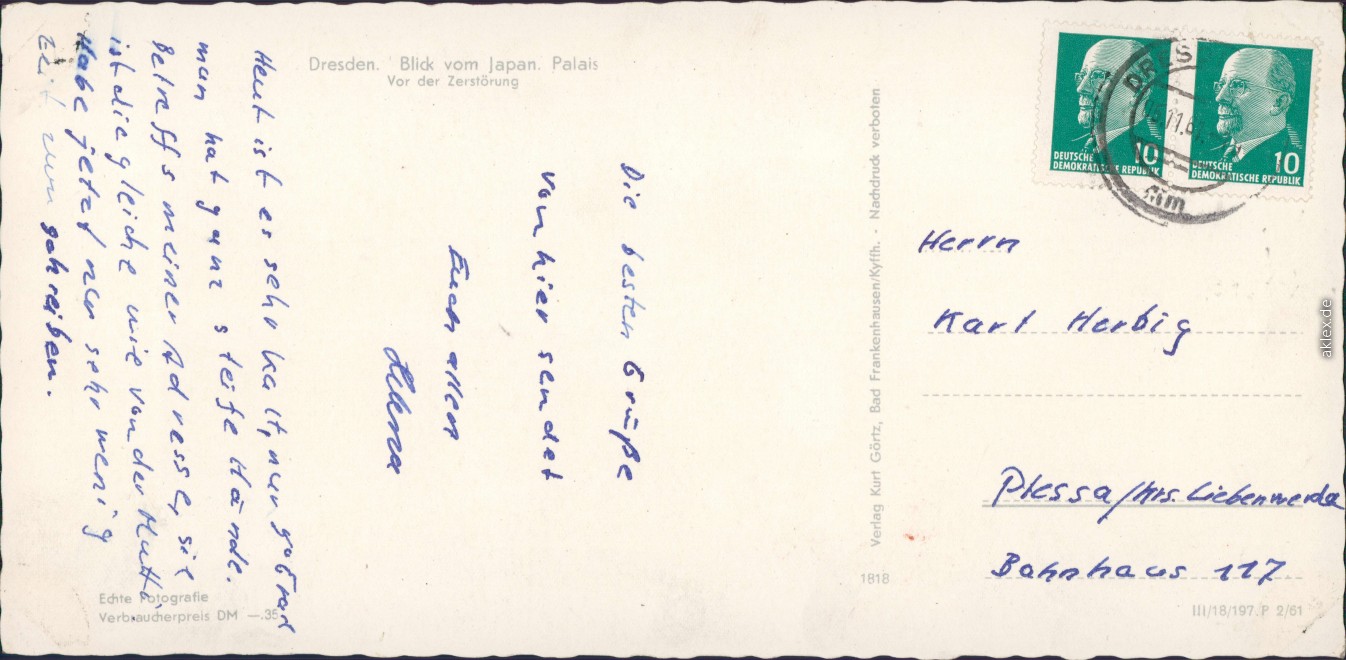 Dresden. Blick vom Japan. Palais
Vor der Zerstörung
Die besten Grüße
von hier sendet
Euch allen
Heut ist es sehr kalt, nur 90 Grad
man hat ganz steife Hände.
Betreffs meiner Adresse, sie
ist die gleiche wie von der Mutti.
Habe jetzt nur sehr wenig
Zeit zum schreiben.
Echte Fotografie
Verbraucherpreis DM —.35
Verlag Kurt Görtz, Bad Frankenhausen/Kyffh. - Nachdruck verboten
1818
DEUTSCHE
DEMOKRATISCHE REPUBLIK
10
DEUTSCHE
DEMOKRATISCHE REPUBLIK
10
DRES
Herrn
Karl Herbig
Plessa/Krs. Liebenwerda
Bahnhaus 117
III/18/197. P 2/61
aklex.de